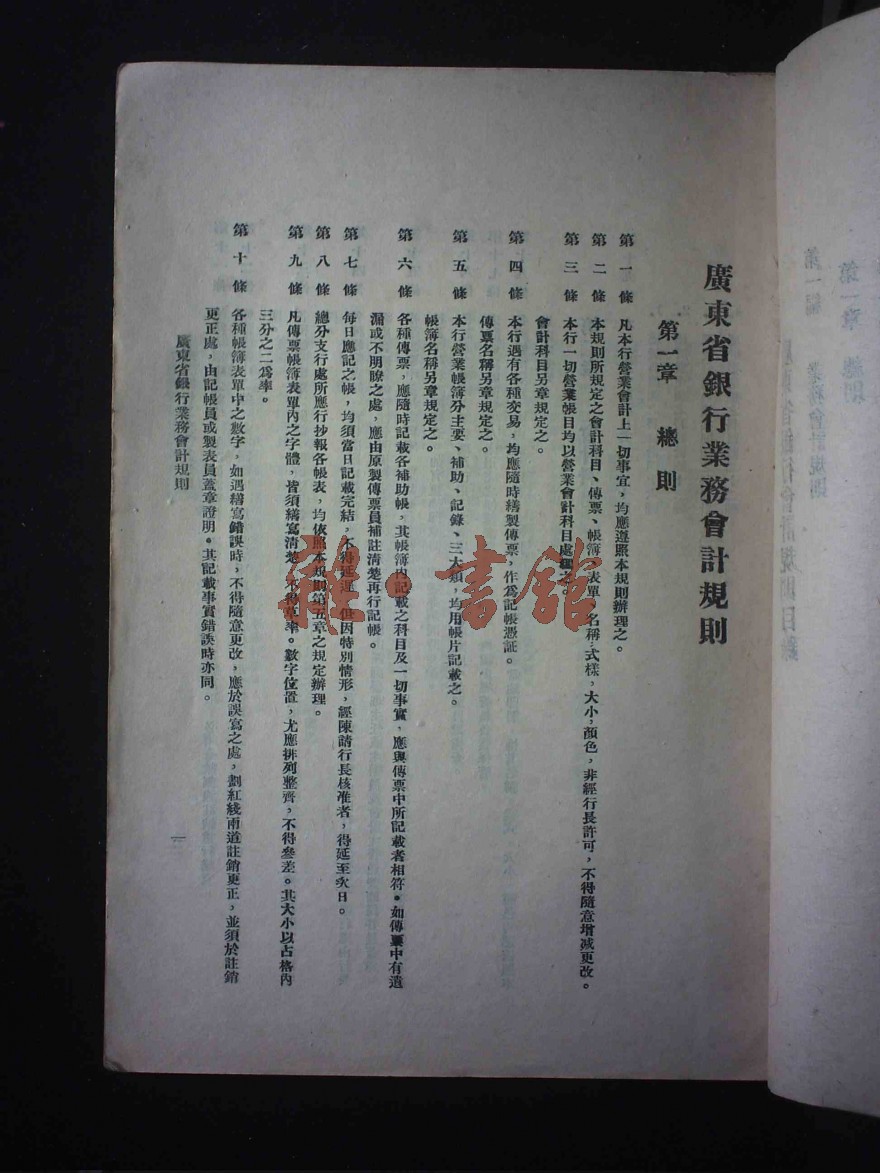 廣東省銀行業務會計規則
第一章 總則
第一條 凡本行營業會計上一切事宜，均應遵照本規則辦理之。
第二條 本規則所規定之會計科目、傳票、帳簿、表單、名稱，式樣，大小，顏色，非經行長許可，不得隨意增减更改。
第三條 本行一切營業帳目均以營業會計科目處理之。
會計科目另章規定之。
第四條 本行遇有各種交易，均應隨時繕製傳票，作爲記帳憑証。
傳票名稱另章規定之。
第五條 本行營業帳簿分主要、補助、記錄、三大類，均用帳片記載之。
帳簿名稱另章規定之。
第六條 各種傳票，應隨時記載各補助帳，其帳簿內記載之科目及一切事實，應與傳票中所記載者相符。如傳票中有遺
漏或不明瞭之處，應由原製傳票員補註清楚再行記帳。
第七條 每日應記之帳，均須當日記載完結，不得延遲，但因特別情形，經陳請行長核准者，得延至次日。
第八條 總分支行處所應行抄報各帳表，均依照本規則第五章之規定辦理。
第九條 凡傳票帳簿表單內之字體，皆須繕寫清楚，不得草率。數字位置，尤應排列整齊，不得參差。其大小以占格內
三分之二爲率。
第十條 各種帳簿表單中之數字，如遇繕寫錯誤時，不得隨意更改，應於誤寫之處，劃紅綫兩道註銷更正，並須於註銷
更正處，由記帳員或製表員蓋章證明。其記載事實錯誤時亦同。
廣東省銀行業務會計規則
一
雜·書館
第一編 業務會計規則
第一章 總則